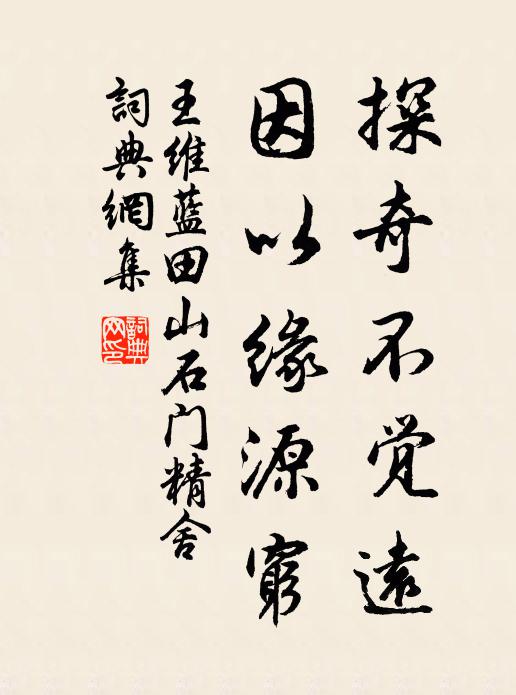 探奇不觉遠
因以缘源窮
王维蓝田山石门精舍
詞典網集
詞典网印